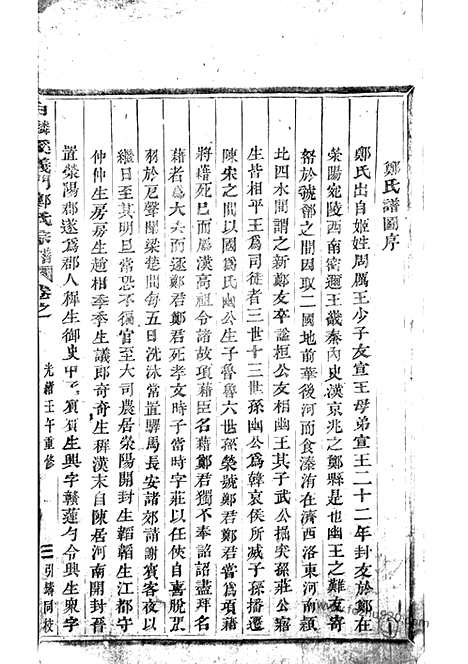 鄭氏譜圖序
鄭氏出自姬姓周厲王少子友宣王母弟宣王二十二年封友於鄭在
滎陽宛陵西南密邇王畿秦內史漢京兆之鄭縣是也幽王之難友寄
帑於虢鄶之間因取二國地前華後河而食溱洧在濟西洛東河南潁
北四水間謂之新鄭友卒諡桓公友相幽王其子武公掘突孫莊公寤
生皆相平王為司徒者三世十三世孫幽公為韓哀侯所滅子孫播遷
陳宋之間以國為氏幽公生子魯魯六世孫榮號鄭君鄭君嘗為項藉
將藉死已而屬漢高祖令諸故項藉臣名藉鄭君獨不奉詔詔盡拜名
藉者為大夫而逐鄭君鄭君死孝文時子當時字莊以任俠自喜脫張
羽於戹聲聞梁楚間每五日洗沐常置驛馬長安諸郊請謝賓客夜以
繼日至其明旦嘗恐不徧官至大司農居滎陽開封生韜韜生江都守
仲仲生房房生趙相季季生議郎奇奇生穉漢末自陳居河南開封晉
置滎陽郡遂為郡人穉生御史中丞賓賓生興字贛蓮勺令興生衆字
白麟溪義門鄭氏宗譜圖卷之一
光緒壬午重修
三 引壽同校